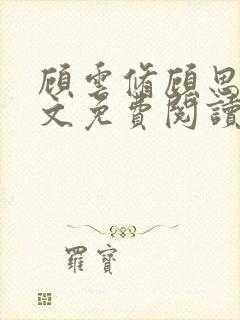 顧雲脩顧思
文免費閱讀
羅寶